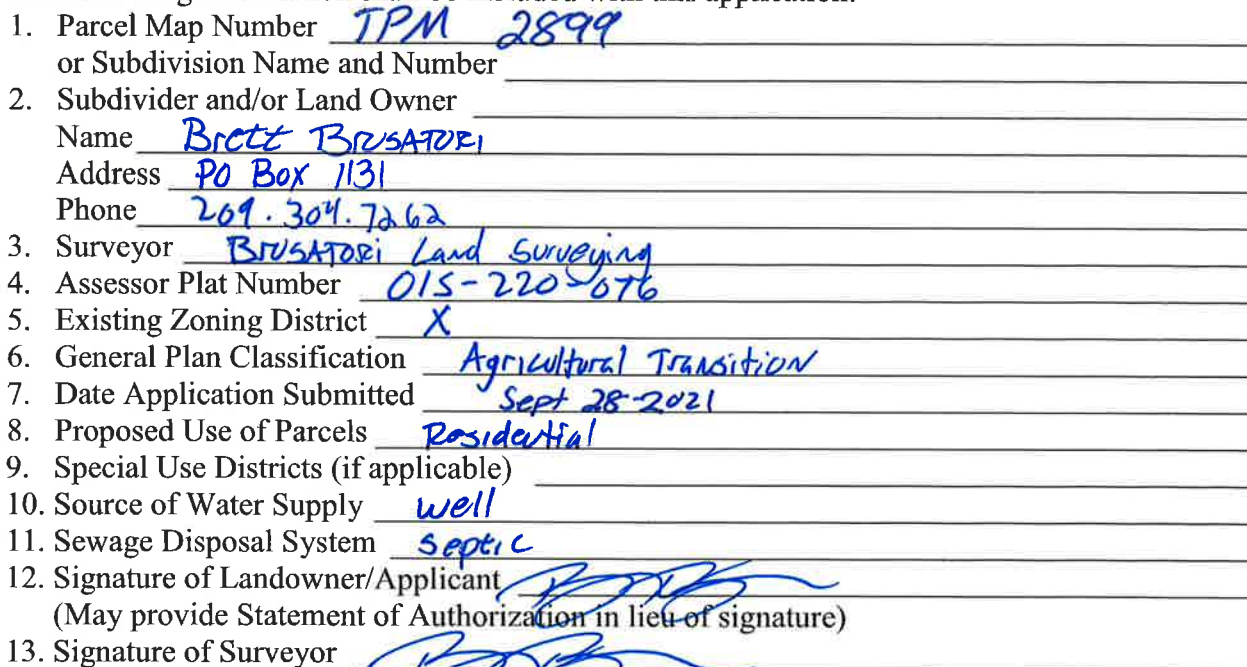 1. Parcel Map Number TPM 2899
or Subdivision Name and Number
2. Subdivider and/or Land Owner
Name Brett BRUSATORI
Address PO Box 1131
Phone 209.304.7262
3. Surveyor BRUSATORI Land Surveying
4. Assessor Plat Number 015-220-076
5. Existing Zoning District X
6. General Plan Classification Agricultural Transition
7. Date Application Submitted Sept 28-2021
8. Proposed Use of Parcels Residential
9. Special Use Districts (if applicable)
10. Source of Water Supply well
11. Sewage Disposal System septic
12. Signature of Landowner/Applicant
(May provide Statement of Authorization in lieu of signature)
13. Signature of Surveyor